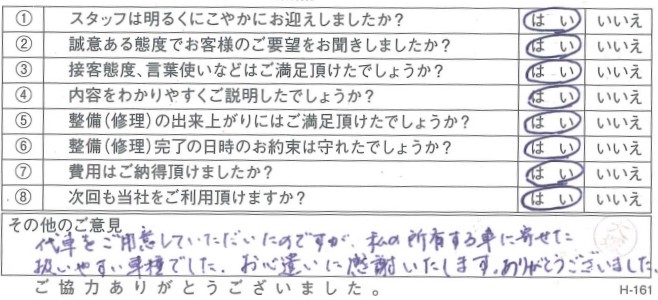 ① スタッフは明るくにこやかにお迎えしましたか? はい いいえ
② 誠意ある態度でお客様のご要望をお聞きしましたか? はい いいえ
③ 接客態度、言葉使いなどはご満足頂けたでしょうか? はい いいえ
④ 内容をわかりやすくご説明したでしょうか? はい いいえ
⑤ 整備(修理)の出来上がりにはご満足頂けたでしょうか? はい いいえ
⑥ 整備(修理)完了の日時のお約束は守れたでしょうか? はい いいえ
⑦ 費用はご納得頂けましたか? はい いいえ
⑧ 次回も当社をご利用頂けますか? はい いいえ
その他のご意見
代車をご用意していただいたのですが、私の所有する車に寄せた
扱いやすい車種でした。お心遣いに感謝いたします。ありがとうございました。
ご協力ありがとうございました。 H-161